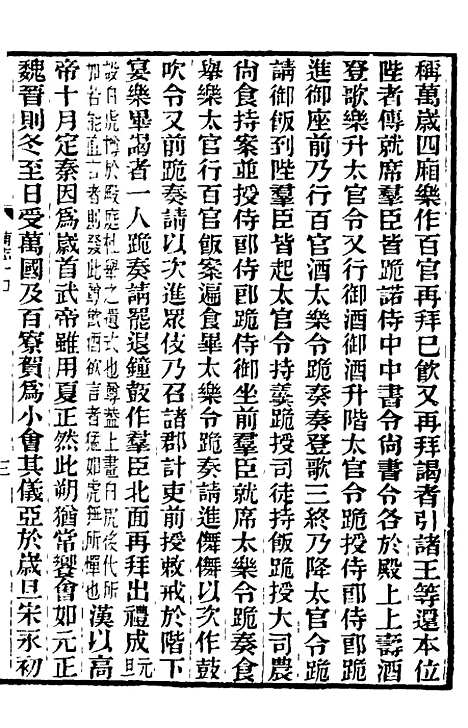 稱萬歲四廂樂作百官再拜已飲又再拜謁者引諸王等還本位
陛者傳就席羣臣皆跪諾侍中中書令尚書令各於殿上上壽酒
登歌樂升太官令又行御酒御酒升階太官令跪授侍郎侍郎跪
進御座前乃行百官酒太樂令跪奏奏登歌三終乃降太官令跪
請御飯到陛羣臣皆起太官令持羹跪授司徒持飯跪授大司農
尚食持案並授侍郎侍郎跪侍御坐前羣臣就席太樂令跪奏食
舉樂太官行百官飯案遍食畢太樂令跪奏請進儛儛以次作鼓
吹令又前跪奏請以次進眾伎乃召諸郡計吏前授敕戒於階下
宴樂畢謁者一人跪奏請罷退鐘鼓作羣臣北面再拜出禮成元旦
設白虎樽於殿庭杜舉之遺式也樽葢上畫白虎後代所
加若能直言者則發此樽飲酒欲言者猛如虎無所憚也漢以高
帝十月定秦因爲歲首武帝雖用夏正然此朔猶常饗會如元正
魏晉則冬至日受萬國及百寮賀爲小會其儀亞於歲旦宋永初
三